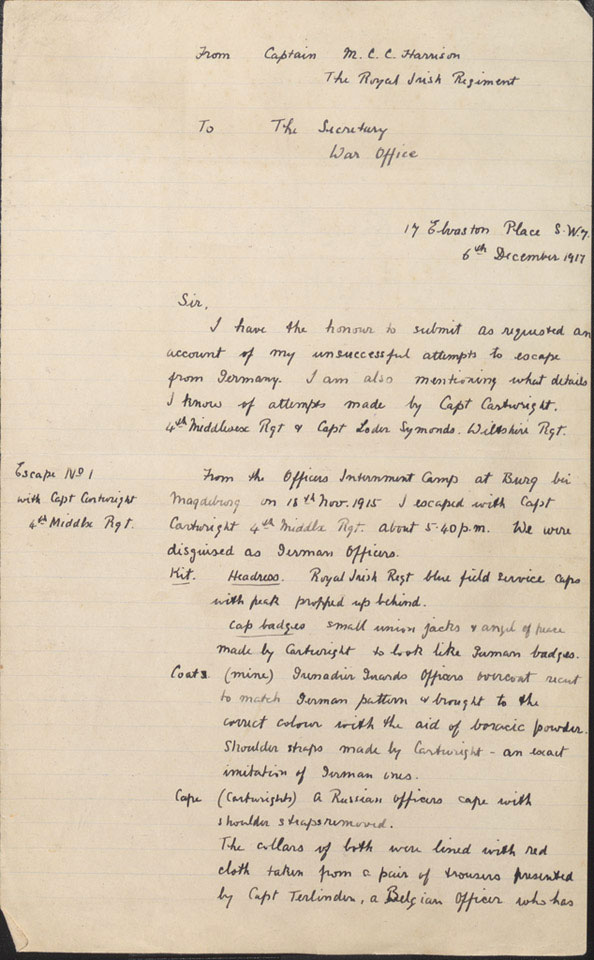 From Captain M. C. C. Harrison
The Royal Irish Regiment
To The Secretary
War Office
17 Elvaston Place S.W.7.
6th December 1917
Sir,
I have the honour to submit as requested an
account of my unsuccessful attempts to escape
from Germany. I am also mentioning what details
I know of attempts made by Capt Cartwright.
4th Middlesex Rgt & Capt Loder Symonds. Wiltshire Rgt.
Escape No 1
with Capt Cartwright
4th Middlx Rgt.
From the Officers Internment Camp at Burg bei
Magdeburg on 18th Nov. 1915 I escaped with Capt
Cartwright 4th Middlx Rgt. about 5.40 p.m. We were
disguised as German Officers.
Kit. Headress. Royal Irish Regt blue field service caps
with peak propped up behind.
Cap badges small union jacks & angel of peace
made by Cartwright to look like German badges.
Coats (mine) Grenadier Guards Officers overcoat recut
to match German pattern & brought to the
correct colour with the aid of boracic powder.
Shoulder straps made by Cartwright - an exact
imitation of German ones.
Cape (Cartwrights) A Russian Officers cape with
shoulder straps removed.
The collars of both were lined with red
cloth taken from a pair of trousers presented
by Capt Terlinden, a Belgian Officer who has